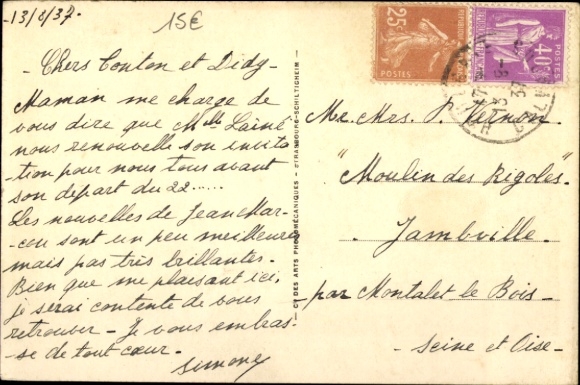 13/8/37.
15€
Chers Tonton et Didy
Maman me charge de
vous dire que Mlle Lainé
nous renouvelle son invita
-tion pour nous tous avant
son départ du 22......
Les nouvelles de Jean Mar-
-cou sont un peu meilleures
mais pas très brillantes.
Bien que me plaisant ici,
je serai contente de vous
retrouver - Je vous embras-
-se de tout cœur.
Simone
CIE DES ARTS PHOTOMÉCANIQUES - STRASBOURG-SCHILTIGHEIM
25c
POSTES
40c
POSTES
Me. Mrs. P. Vernon
"Moulin des Rigoles"
Jambville
par Montalet le Bois
Seine et Oise